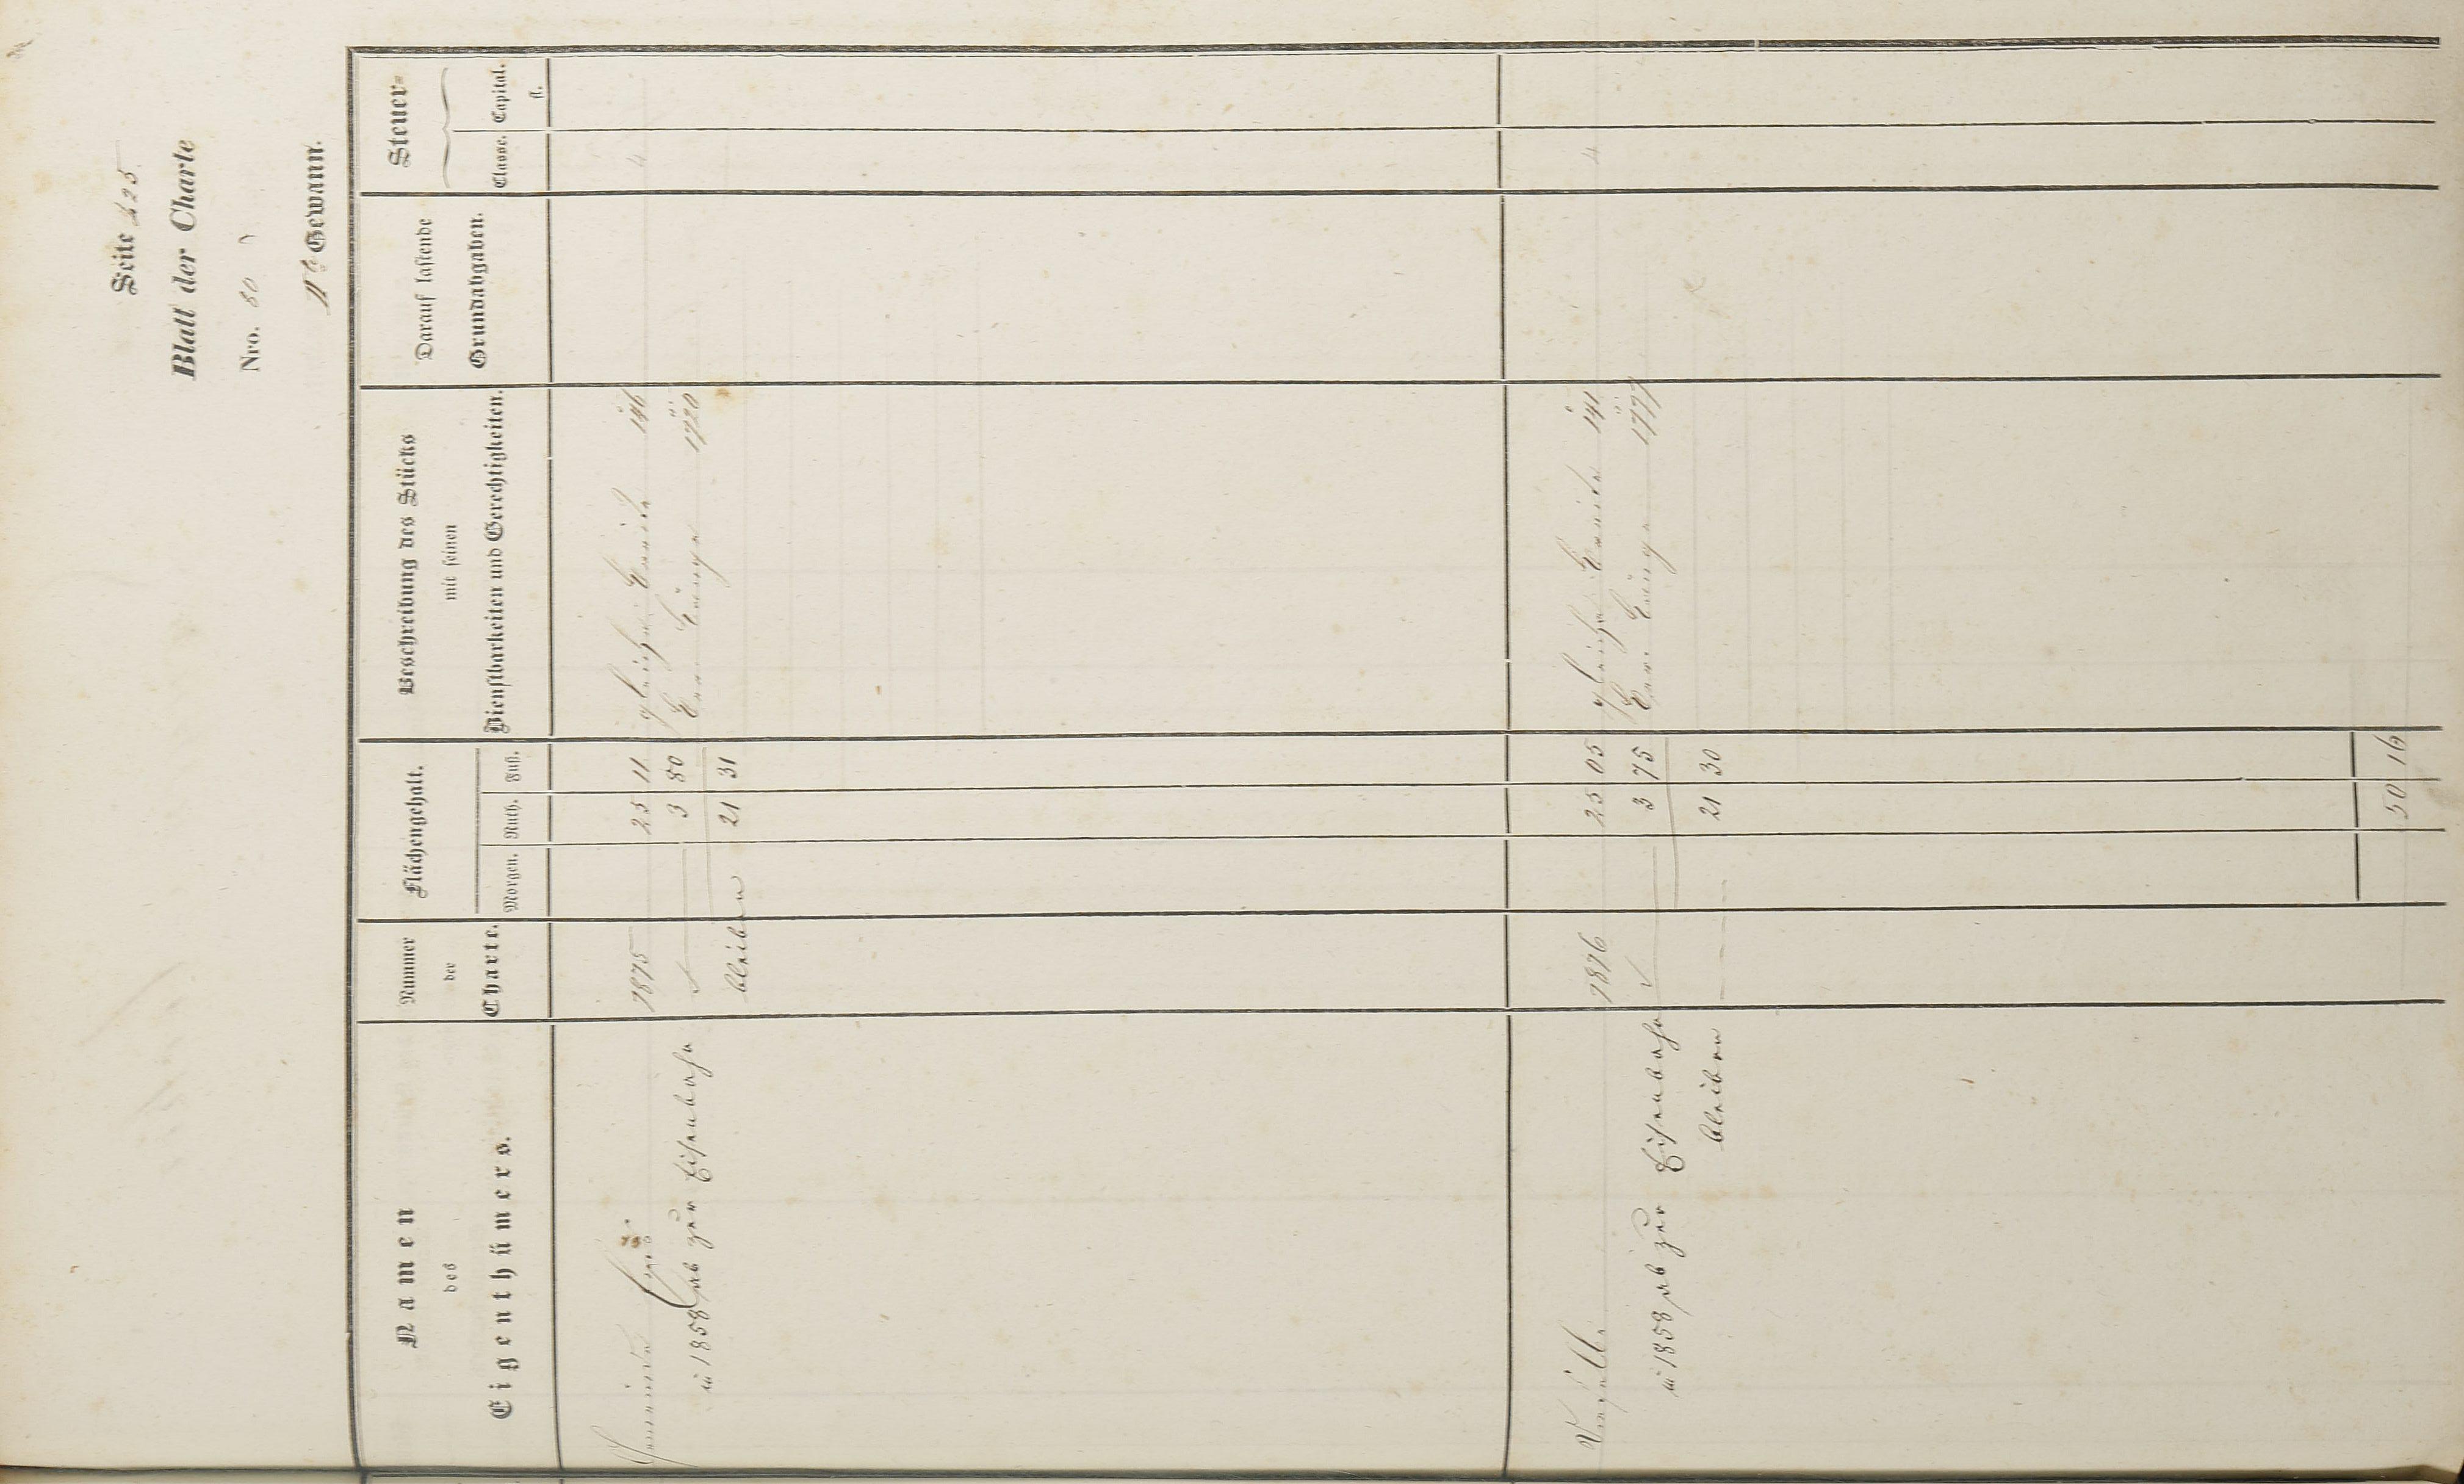 Seite 425
Blatt der Charte
Nro. 80
11te Gewann.
Namen des Eigenthümers.
Nummer der Charte.
Flächengehalt.
Morgen. Ruth. Fuß.
Beschreibung des Stücks mit seinen Dienstbarkeiten und Gerechtigkeiten.
Darauf lastende Grundabgaben.
Steuer-
Classe. Capital. fl.
Gemeinde 7875 25 11 gleiche Breite 146 4
in 1858 ab zur Eisenbahn 3 80 Cor. Länge 1720
bleiben 21 31
Dieselbe 7876 25 05 gleiche Breite 141 4
in 1858 ab zur Eisenbahn 3 75 Cor. Länge 1777
bleiben 21 30
50 16